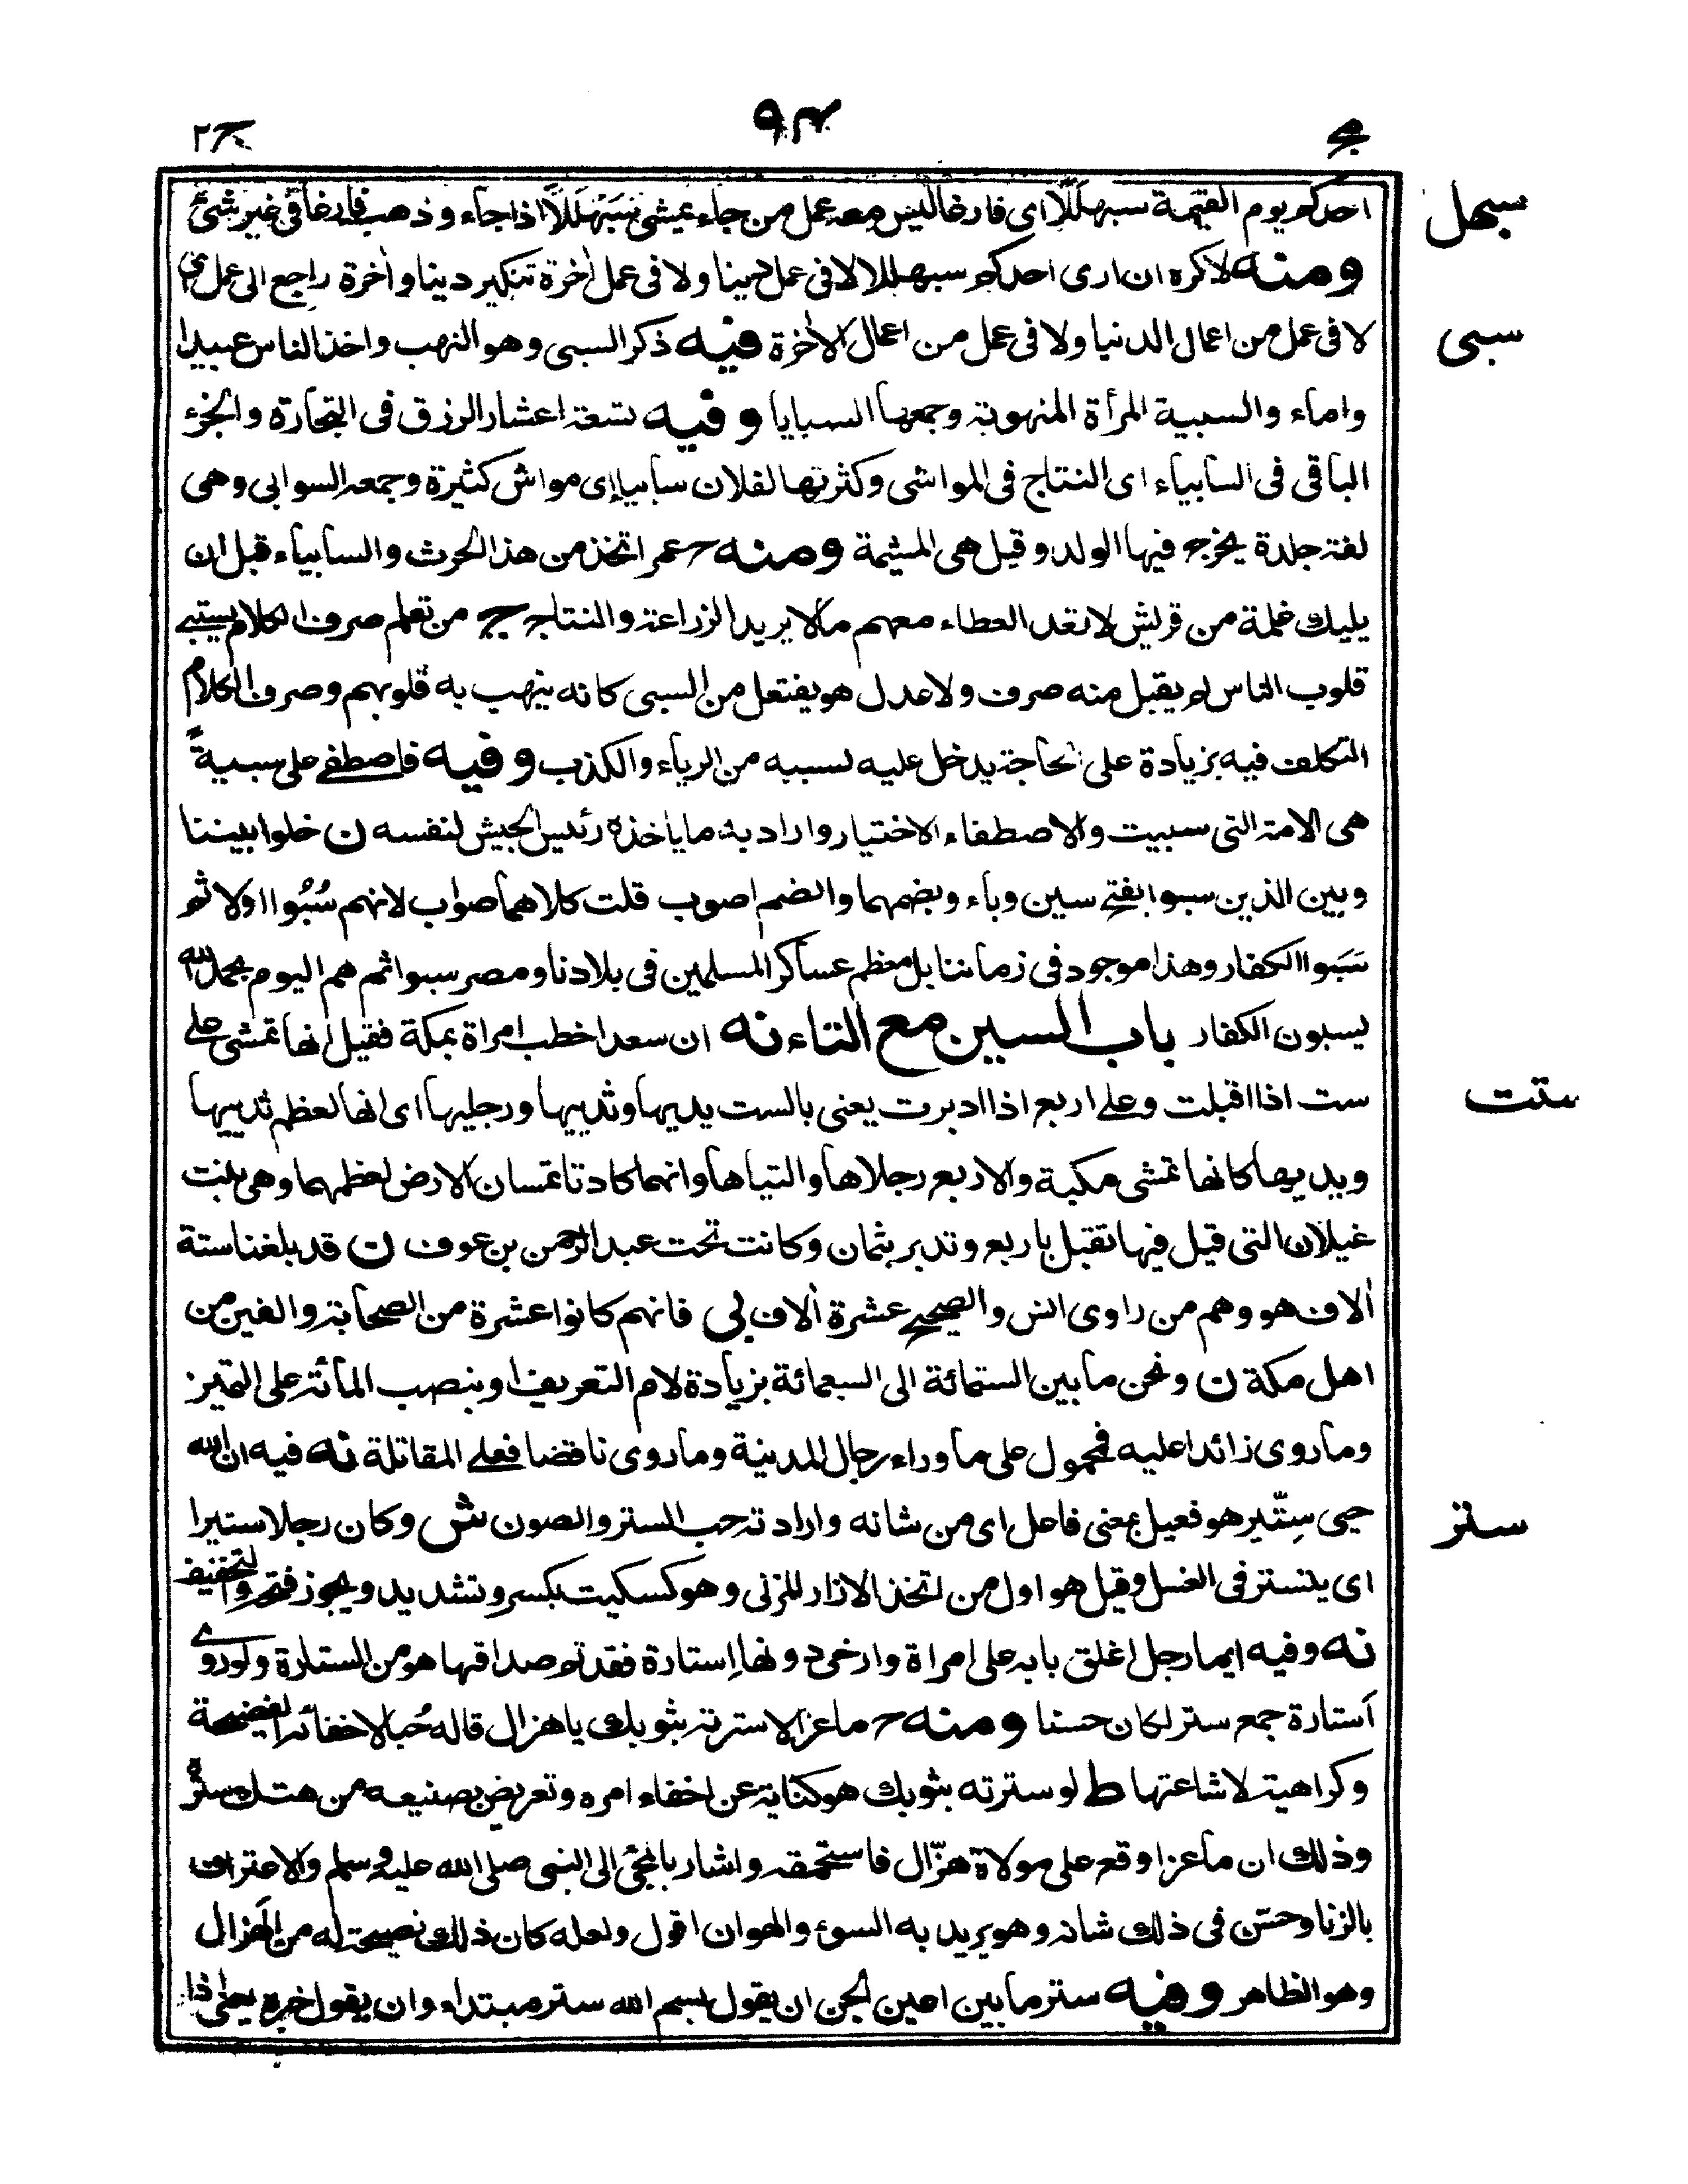 ج ٢
٩٣
سبهل
احدكم يوم القيمة سبهللا اى فارغا ليس معه عمل من جاء يمشى سبهللا اذا جاء و ذهب فارغا فى غير شئ
ومنه لاكره ان ارى احدكم سبهللا لا فى عمل دينا ولا فى عمل أخرة تنكير دينا و أخرة راجع الى عمل اى
سبى
لا فى عمل من اعمال الدنيا ولا فى عمل من اعمال الاخرة فيه ذكر السبى وهو النهب واخذ الناس عبيدا
واماء والسبية المرأة المنهوبة وجمعها السبايا وفيه تسعة اعشار الرزق فى التجارة والجزء
الباقى فى السابياء اى النتاج فى المواشى وكثرتها لفلان سابيا اى مواش كثيرة وجمعه السوابى وهى
لغة جلدة يخرج فيها الولد وقيل هى المشيمة ومنه ح عمر اتخذ من هذا الحرث والسابياء قبل ان
يليك غلمة من قريش لا تعد العطاء معهم مالا يريد الزراعة والنتاج ج من تعلم صرف الكلام يستبى
قلوب الناس لم يقبل منه صرف ولا عدل هو يفتعل من السبى كانه ينهب به قلوبهم وصرف الكلام
التكلف فيه بزيادة على الحاجة يدخل عليه لسببه من الرياء والكذب وفيه فاصطفى على سبيةً
هى الامة التى سبيت والاصطفاء الاختيار واراد به ما ياخذه رئيس الجيش لنفسه ن خلوا بيننا
وبين الذين سبوا بفتح سين وباء وبضمهما والضم اصوب قلت كلاهما صواب لانهم سُبُوا اولا ثم
سَبَوا الكفار وهذا موجود فى زماننا بل معظم عساكر المسلمين فى بلادنا ومصر سبوا ثم هم اليوم بحمد الله
يسبون الكفار باب السين مع التاء نه ان سعدا خطب امراة بمكة فقيل انها تمشى على
ستت
ست اذا اقبلت وعلى اربع اذا ادبرت يعنى بالست يديها وثدييها ورجليها اى انها لعظم ثدييها
ويديها كانها تمشى مكبة والاربع رجلاها واليتاها وانهما كادتا تمسان الارض لعظمهما وهى بنت
غيلان التى قيل فيها تقبل باربع وتدبر بثمان وكانت تحت عبد الرحمن بن عوف ن قد بلغنا ستة
ألاف هو وهم من راوى انس والصحيح عشرة ألاف لى فانهم كانوا عشرة من الصحابة والغين من
اهل مكة ن ونحن ما بين الستمائة الى السبعمائة بزيادة لام التعريف وبنصب المائة على التميز
وما روى زائدا عليه فمحمول على ما وراء رجال المدينة وما روى ناقضا فعلى المقاتلة نه فيه ان الله
ستر
حيى سِتّير هو فعيل بمعنى فاعل اى من شانه وارادته حب الستر والصون ش وكان رجلا ستيرا
اى يتستر فى الغسل وقيل هو اول من اتخذ الازار للزنى وهو كسكيت بكسر وتشديد ويجوز فتحه والتخفيف
نه وفيه ايما رجل اغلق بابه على امراة وارخى دونها إستارة فقد تم صداقها هو من الستارة ولو روى
أستارة جمع ستر لكان حسنا ومنه ح ماعز الا سترته بثوبك يا هزال قاله حُبا لاخفائه الفضيحة
وكراهية لاشاعتها ط لو سترته بثوبك هو كناية عن اخفاء امره وتعريض بصنيعه من هتك سترٍ
وذلك ان ماعزا وقع على مولاة هزّال فاستحمقه واشار بالمجئ الى النبى صلى الله عليه وسلم والاعتراف
بالزنا وحسّن فى ذلك شانه وهو يريد به السوء والهوان اقول ولعله كان ذلك نصيحة له من الهزال
وهو الظاهر وفيه ستر ما بين اعين الجن ان يقول بسم الله ستر مبتداء وان يقول خبره يعنى اذا